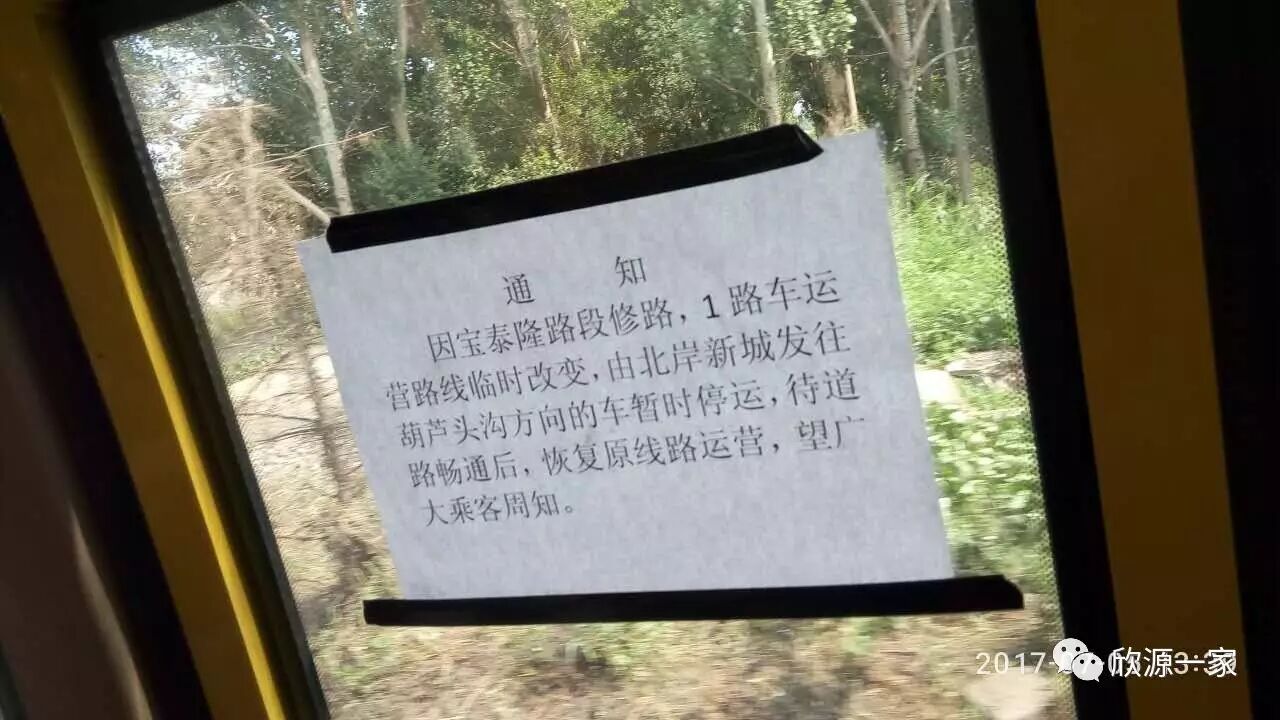 通 知
因宝泰隆路段修路，1路车运
营路线临时改变，由北岸新城发往
葫芦头沟方向的车暂时停运，待道
路畅通后，恢复原线路运营，望广
大乘客周知。
2017
欣源一家